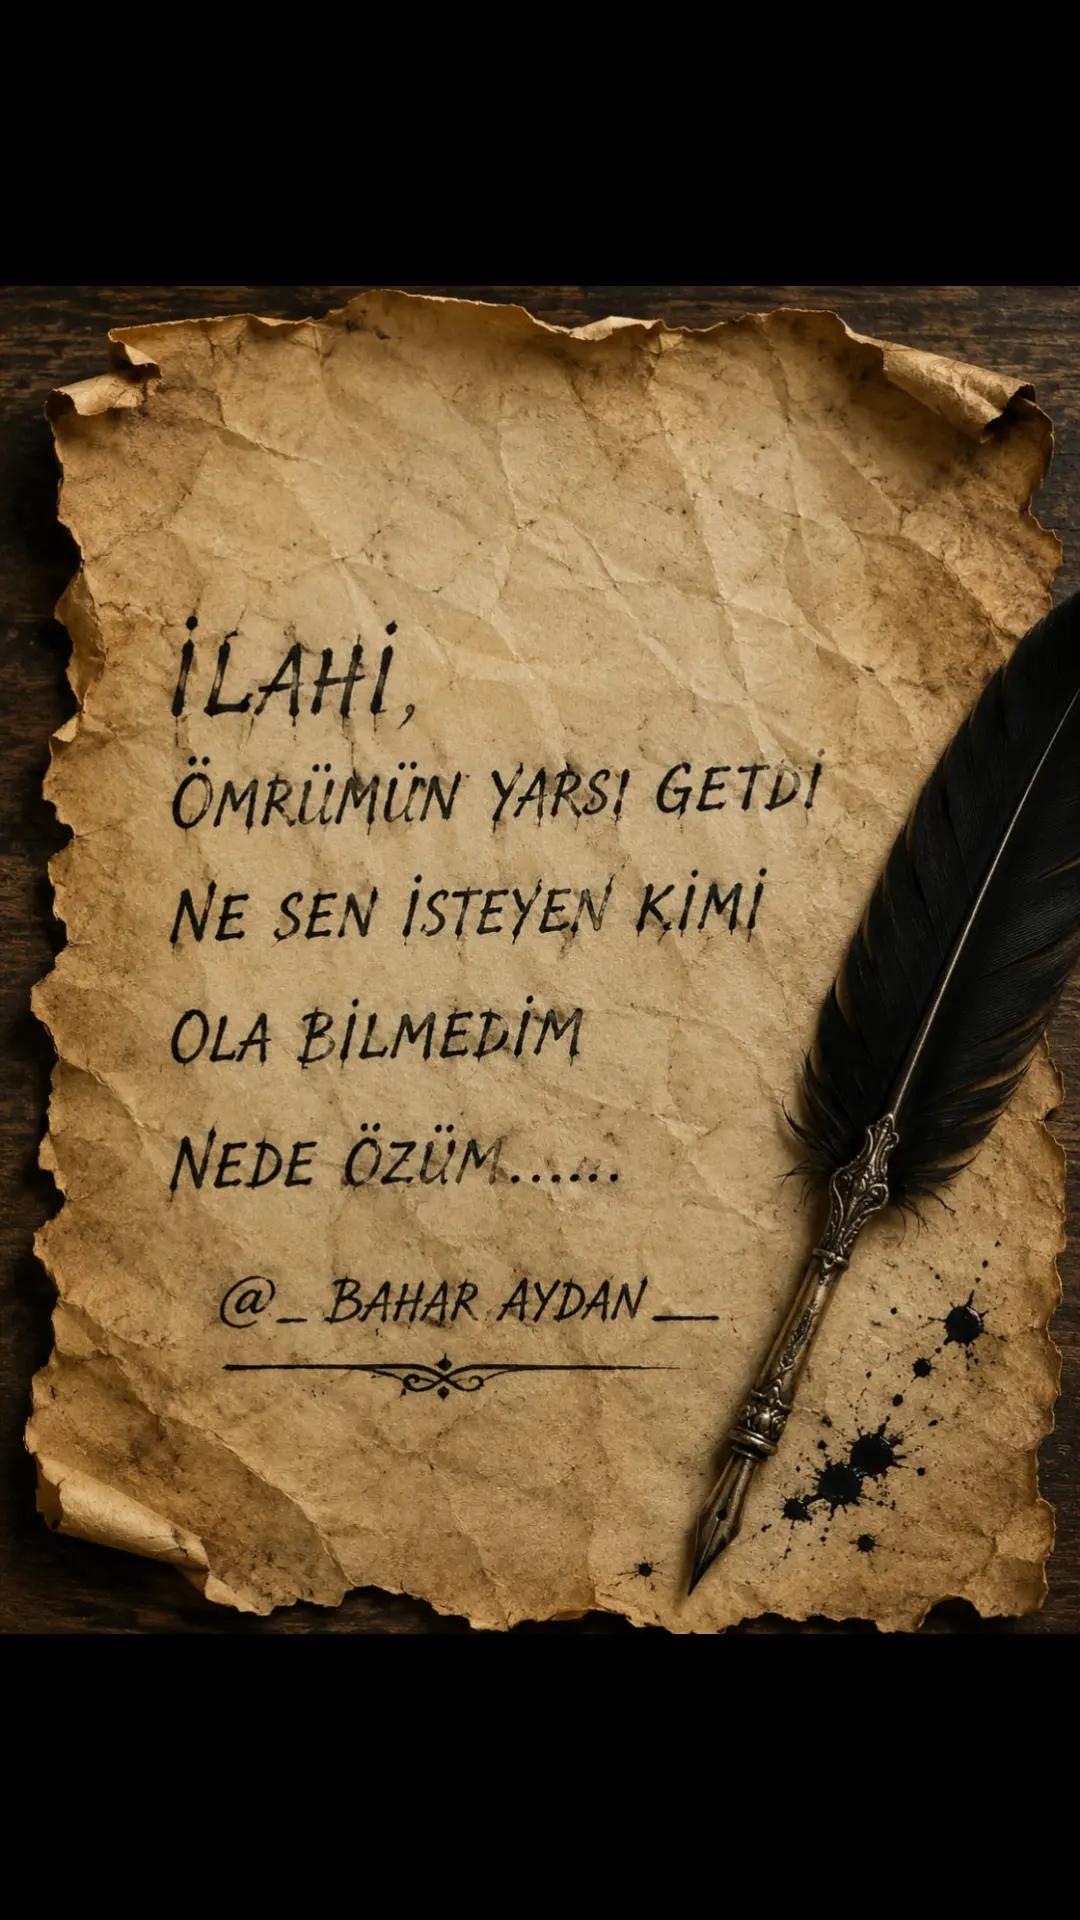 İLAHİ,
ÖMRÜMÜN YARSI GETDİ
NE SEN İSTEYEN KİMİ
OLA BİLMEDİM
NEDE ÖZÜM......
@_ BAHAR AYDAN __